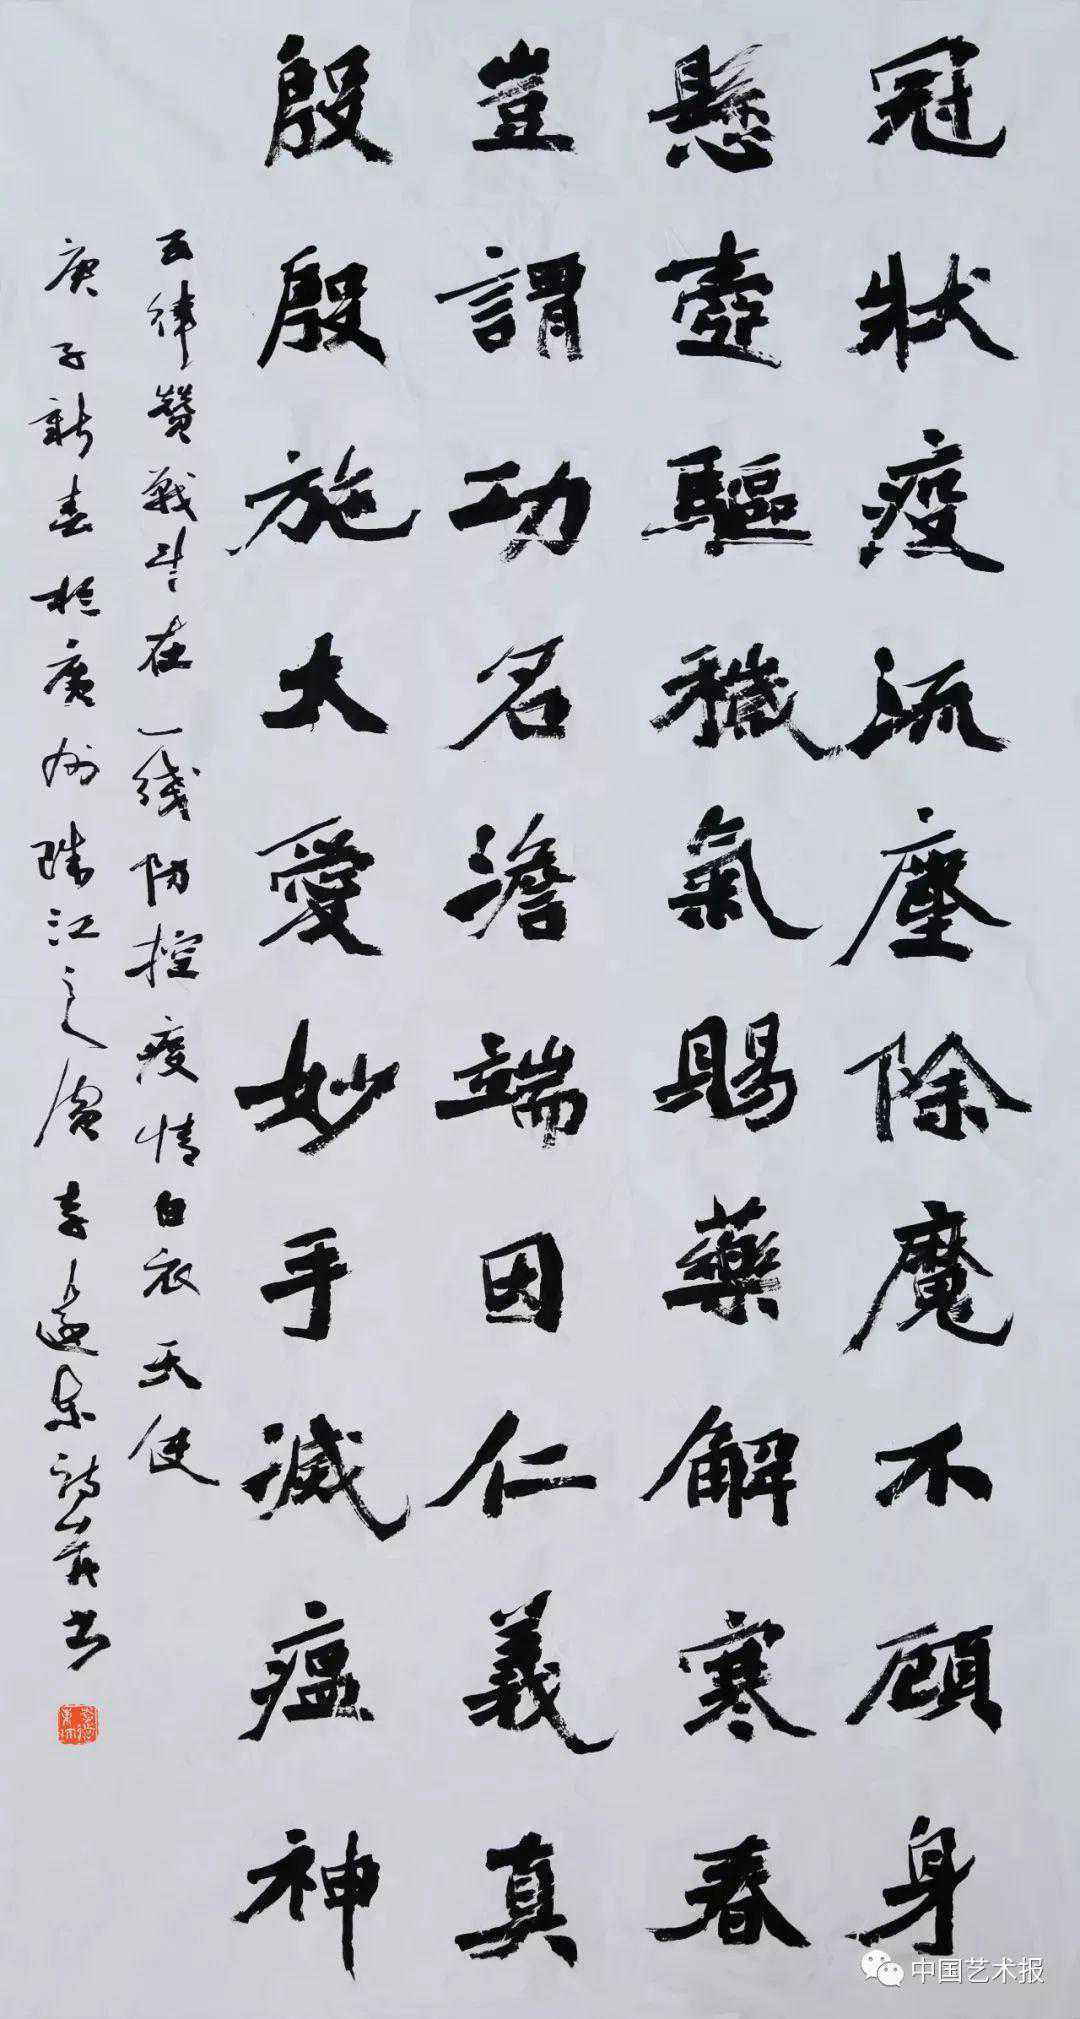 冠狀疫流塵除魔不顧身
懸壺驅穢氣賜藥解寒春
豈謂功名澹端因仁義真
殷殷施大愛妙手滅瘟神
五律贊戰斗在一线防控疫情白衣天使
庚子新春於廣州珠江之濱李遠東詩并书
中国艺术报